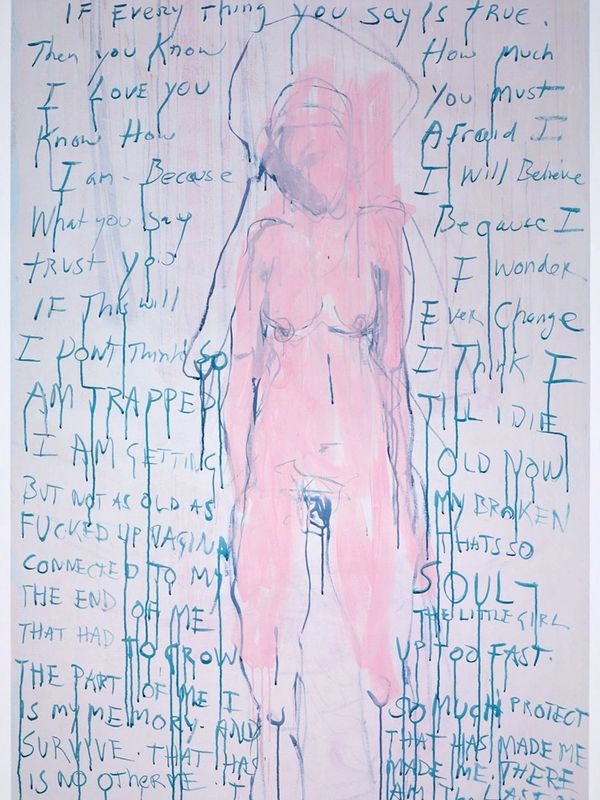 IF Every Thing you say Is true.
Then you Know How Much
I Love you You Must
Know How Afraid I
I am - Because I Will Believe
What you Say Because I
trust you I wonder
IF This will Ever Change
I Dont Think So I Think I
AM TRAPPED TILL I DIE
I AM GETTING OLD NOW
BUT NOT AS OLD AS MY BROKEN
FUCKED UP VAGINA THATS SO
CONNECTED TO MY SOUL-
THE END OF ME THE LITTLE GIRL
THAT HAD TO GROW UP TOO FAST.
THE PART OF ME I SO MUCH PROTECT
IS MY MEMORY. AND THAT HAS MADE ME
SURVIVE. THAT HAS MADE ME. THERE
IS NO I AM THE LAST OF